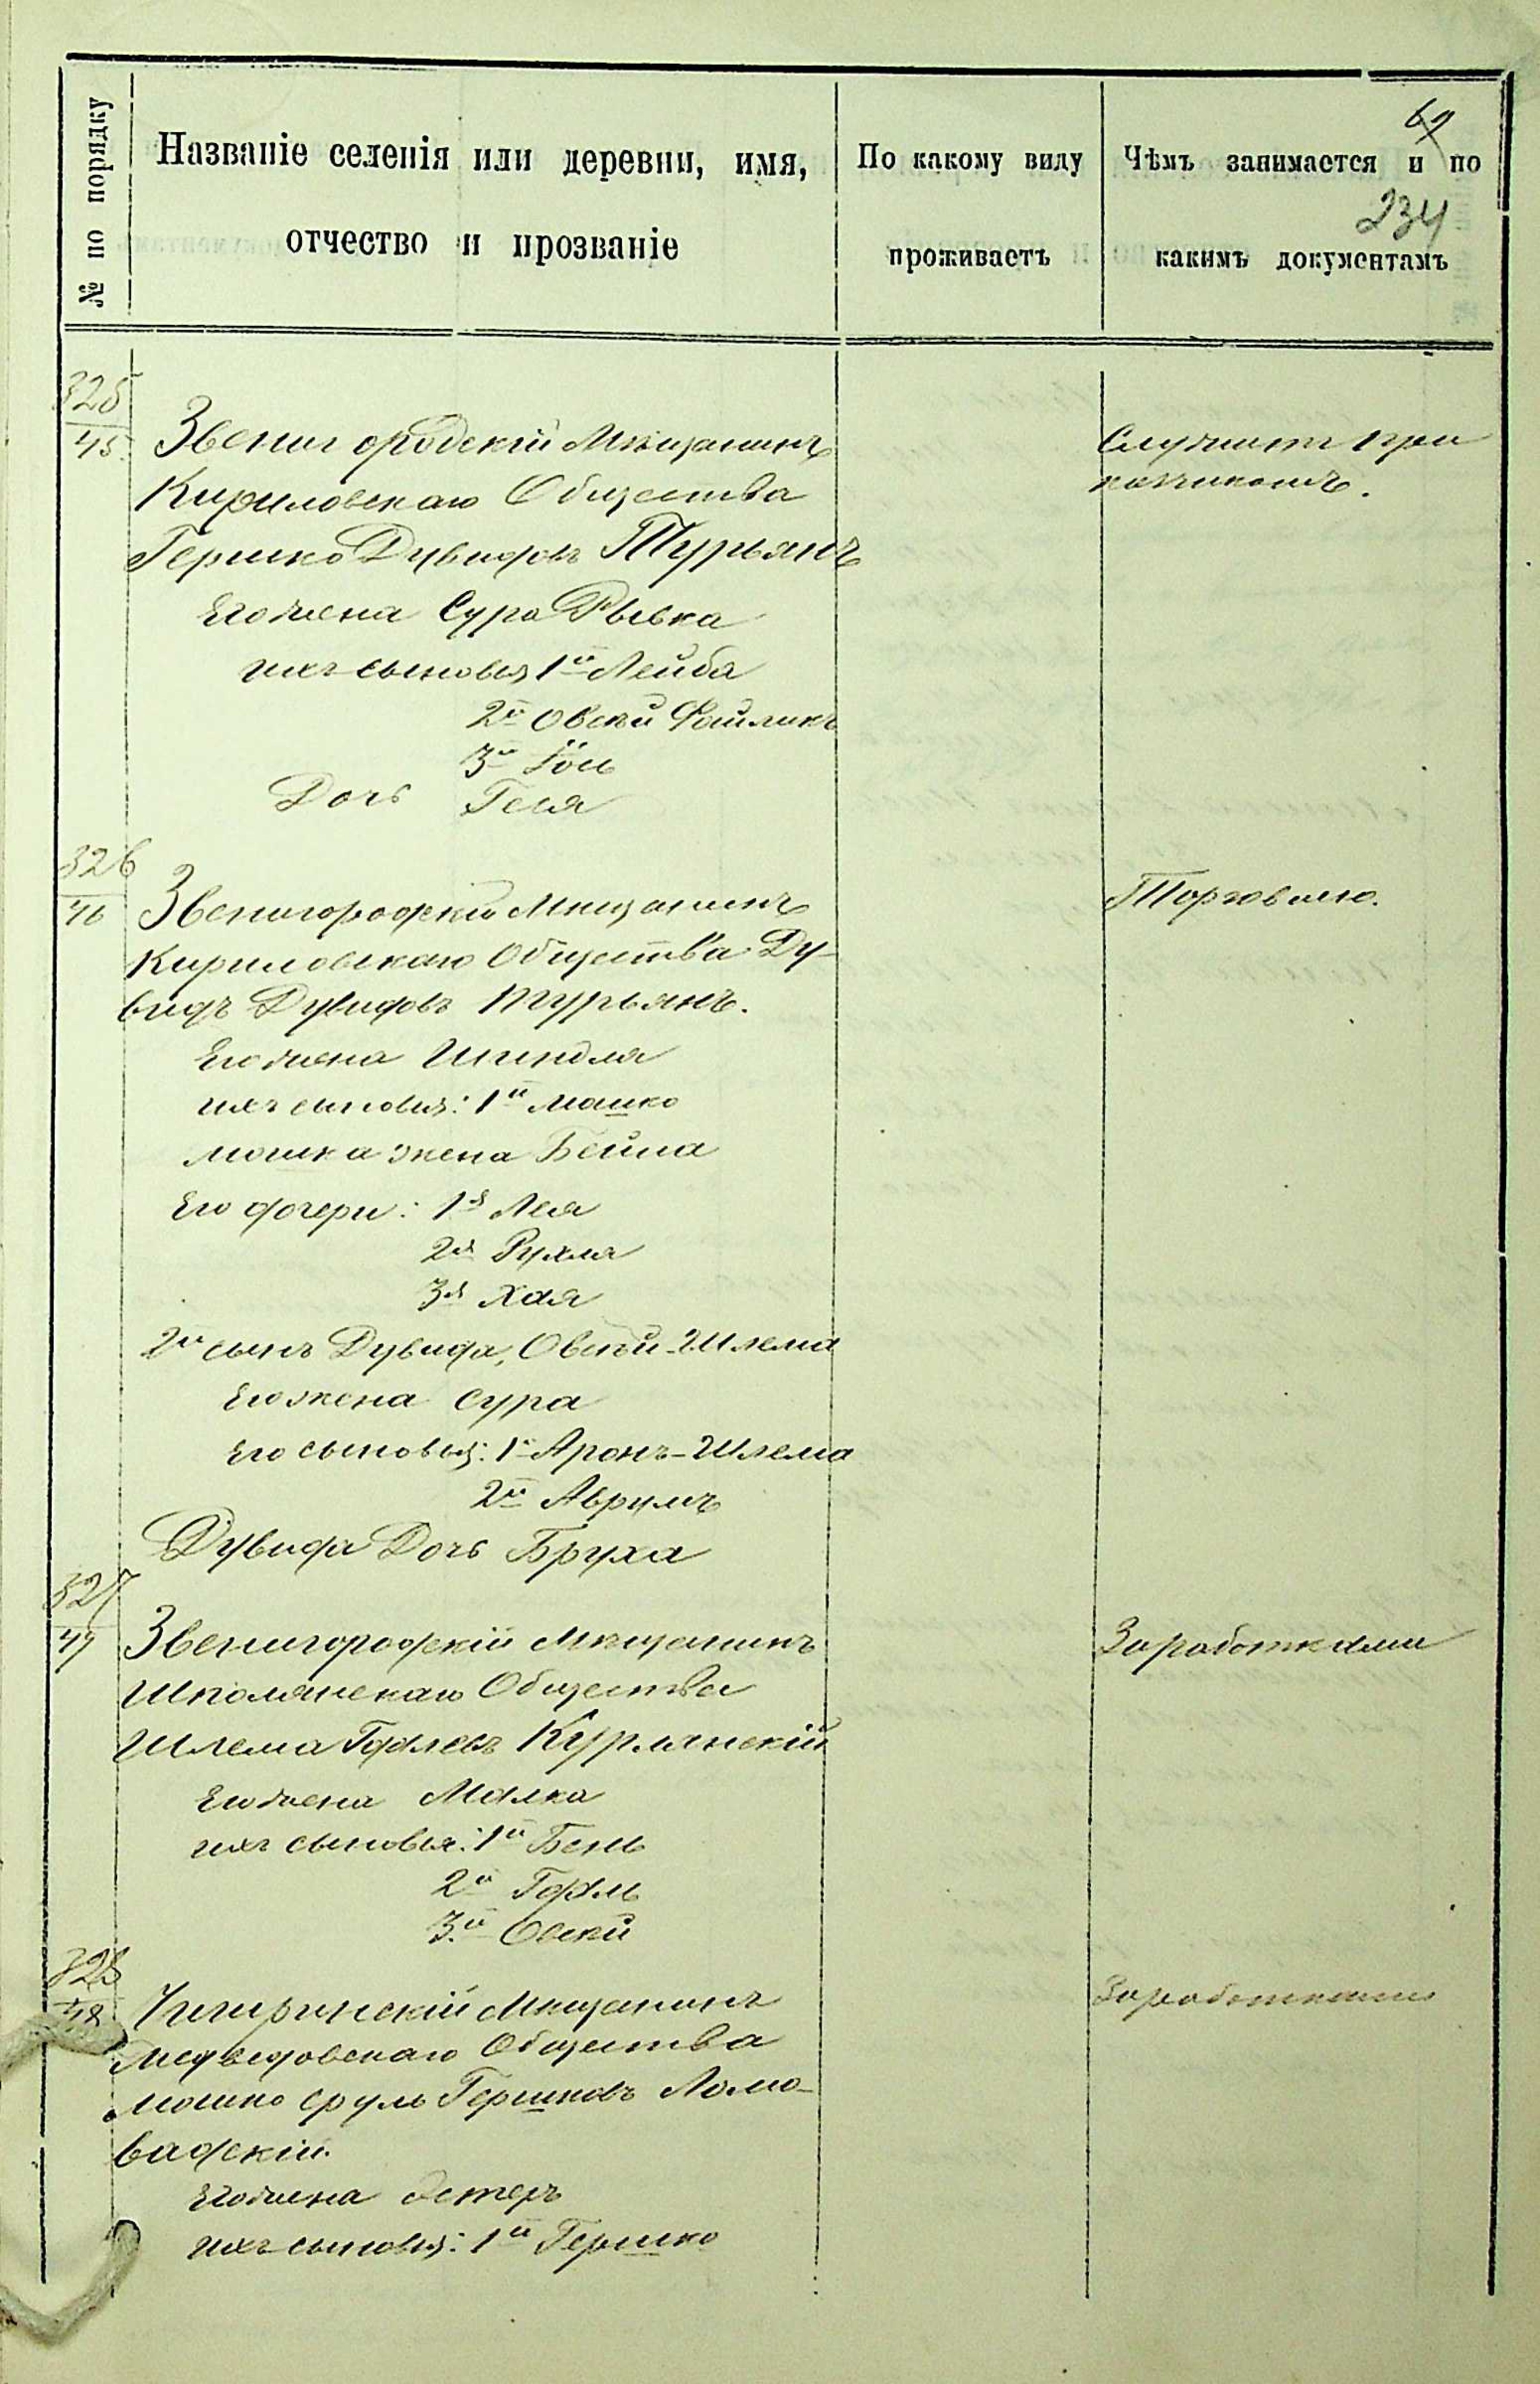 69
234
№ по порядку
Названіе селенія или деревни, имя,
отчество и прозваніе
По какому виду
проживаетъ
Чѣмъ занимается и по
какимъ документамъ
325
45
Звенигородскій Мѣщанинъ
Кириловскаго Общества
Гершко Дувидовъ Турьянъ
Его жена Сура Рывка
ихъ сыновья 1й Лейба
2й Овсѣй Файликъ
3й Іось
Дочь Геся
Служитъ при
кащикомъ.
326
46
Звенигородскій Мѣщанинъ
Кириловскаго Общества Ду-
видъ Дувидовъ Турьянъ.
Его жена Шиндля
ихъ сыновья: 1й Мошко
Мошка жена Бейла
Его дочери: 1я Лея
2я Рухля
3я Хая
2й сынъ Дувида, Овсѣй-Шлема
Его жена Сура
Его сыновья: 1й Аронъ-Шлема
2й Аврумъ
Дувида Дочь Бруха
Торговлею.
327
47
Звенигородскій Мѣщанинъ
Шполянскаго Общества
Шлема Гдалевъ Курлянскій
Его жена Малка
ихъ сыновья: 1й Бень
2й Гдаль
3й Овсѣй
Заработками
328
48
Чигиринскій Мѣщанинъ
Медведовскаго Общества
Мошко Сруль Гершковъ Ломо-
вадскій.
Его жена Эстеръ
ихъ сыновья: 1й Гершко
Заработками